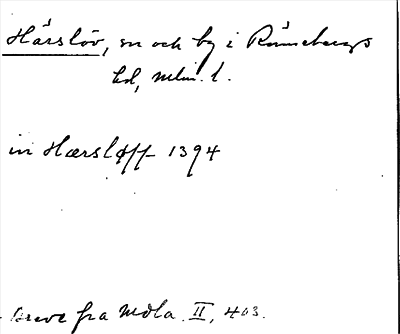 Härslöv, sn och by i Rönnebergs
hd, Mlm. l.
in Hærsløff 1394
breve fra Mdla. II, 403.